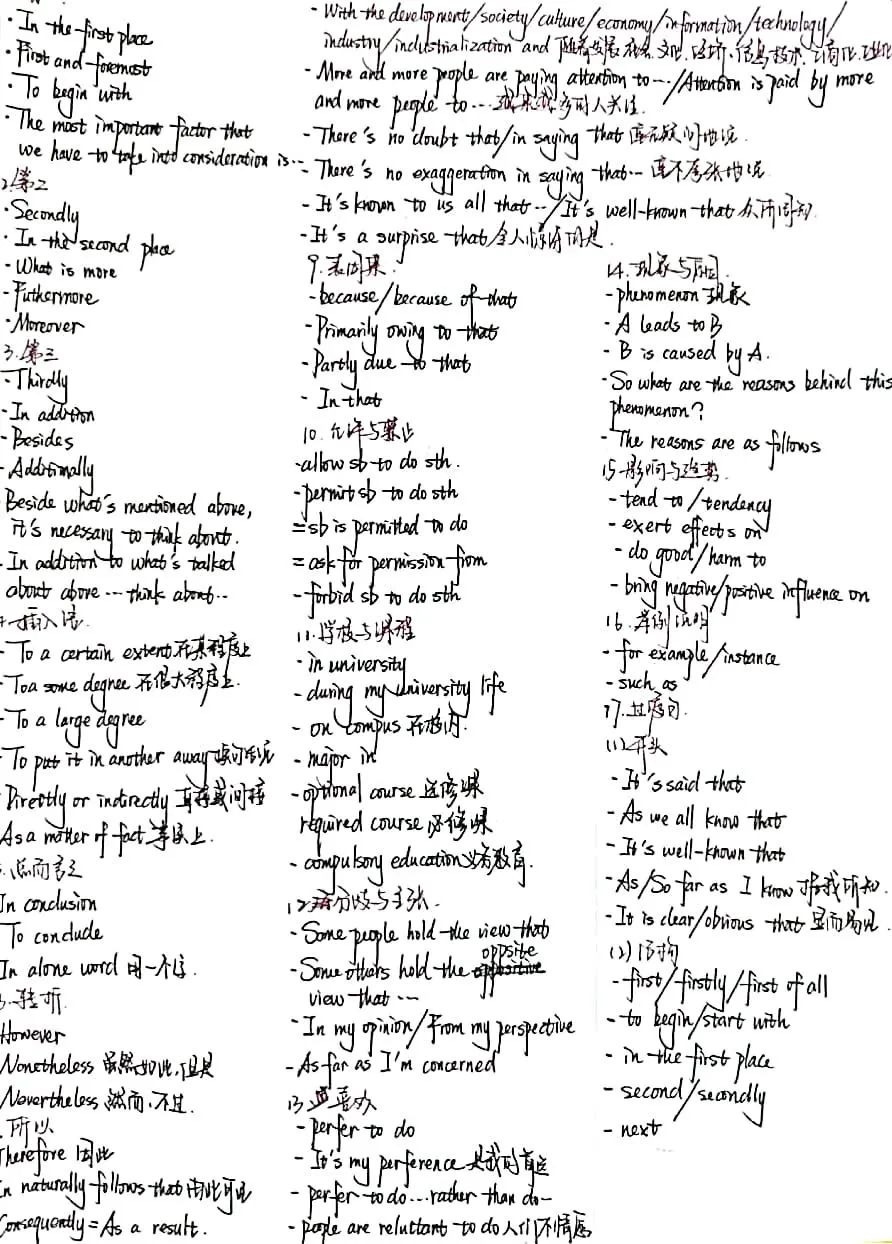 · In the first place
· First and foremost
· To begin with
· The most important factor that
we have to take into consideration is…
2.第二
· Secondly
· In the second place
- What is more
- Futhermore
· Moreover
3.第三
- Thirdly
- In addition
- Besides
- Additionally
Beside what's mentioned above,
it's necessary to think about.
- In addition to what's talked
about above … think about…
插入语
- To a certain extent 在某程度上
- Toa some degree 在很大程度上.
- To a large degree
- To put it in another away 换句话说
- Directly or indirectly 直接或间接
As a matter of fact 事实上.
总而言之
In conclusion
To conclude
In alone word 用一个字.
转折
However
Nonetheless 虽然如此,但是
Nevertheless 然而,不过.
所以
Therefore 因此
In naturally follows that 由此可见
Consequently = As a result.
- With the development/society/culture/economy/information/technology/
industry/industrialization and 随着发展 社会.文化.经济.信息技术.工商化.工业化
- More and more people are paying attention to…/Attention is paid by more
and more people to… 越来越多的人关注.
- There's no doubt that/in saying that 毫无疑问地说.
- There's no exaggeration in saying that… 毫不夸张地说
- It's known to us all that…/It's well-known that 众所周知
- It's a surprise that 令人惊讶的是.
9.表因果.
- because/because of that
- Primarily owing to that
- Partly due to that
- In that
10.允许与禁止
- allow sb to do sth.
- permit sb to do sth
= sb is permitted to do
= ask for permission from
- forbid sb to do sth
11.学校与课程
- in university
- during my university life
- on compus 在校内.
- major in
- optional course 选修课
required course 必修课
- compulsory education 义务教育.
12.分歧与主张.
- Some people hold the view that
- Some others hold the oppsite
view that …
- In my opinion/From my perspective
- As far as I'm concerned
13.喜办
- perfer to do
- It's my perference 是我的首选
- perfer to do … rather than do-
- people are reluctant to do 人们不情愿
14.现象与原因.
- phenomenon 现象
- A leads to B
- B is caused by A.
- So what are the reasons behind this
phenomenon?
- The reasons are as follows
15.影响与趋势.
- tend to/tendency
- exert effects on
- do good/harm to
- bring negative/positive influence on
16.举例说明
- for example/instance
- such as
17.过渡句.
(1).开头
- It's said that
- As we all know that
- It's well-known that
- As/So far as I know 据我所知.
- It is clear/obvious that 显而易见.
(2)结构
- first/firstly/first of all
- to begin/start with
- in the first place
- second/secondly
- next